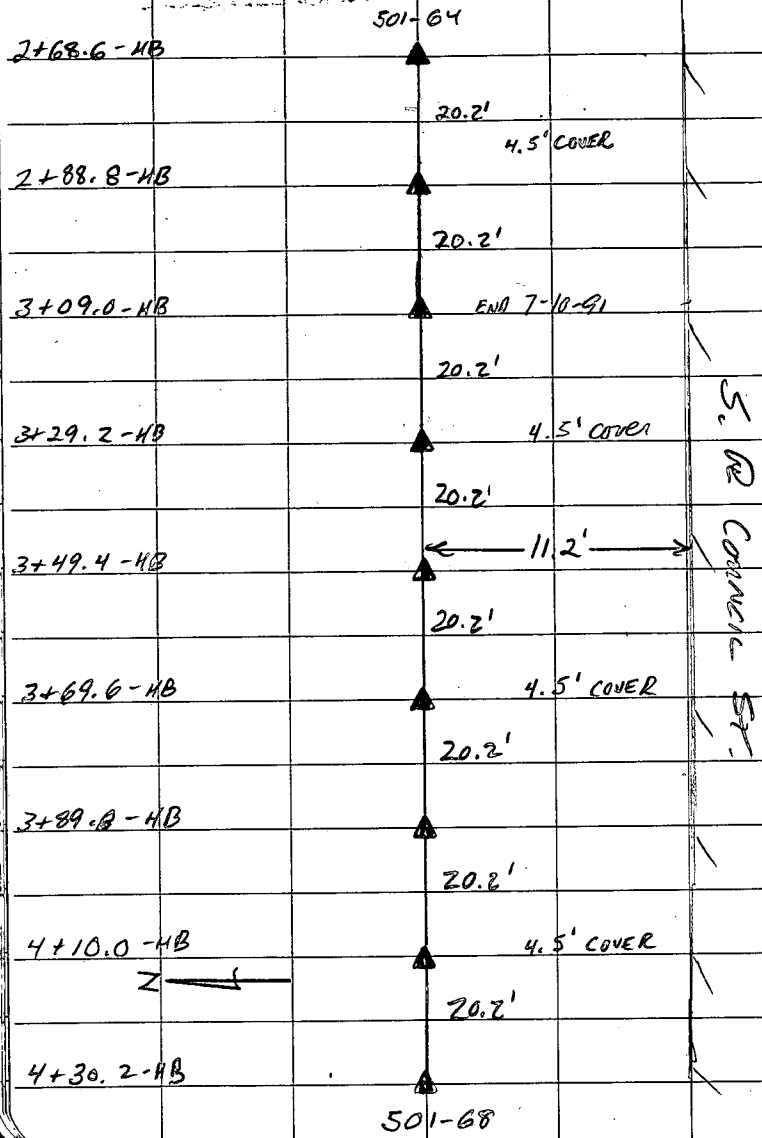 501-64
2+68.6-HB
20.2'
4.5' COVER
2+88.8-HB
20.2'
3+09.0-HB
END 7-10-91
20.2'
3+29.2-HB
4.5' COVER
20.2'
11.2'
3+49.4-HB
20.2'
3+69.6-HB
4.5' COVER
20.2'
3+89.8-HB
20.2'
4+10.0-HB
4.5' COVER
N
20.2'
4+30.2-HB
501-68
S. ST.